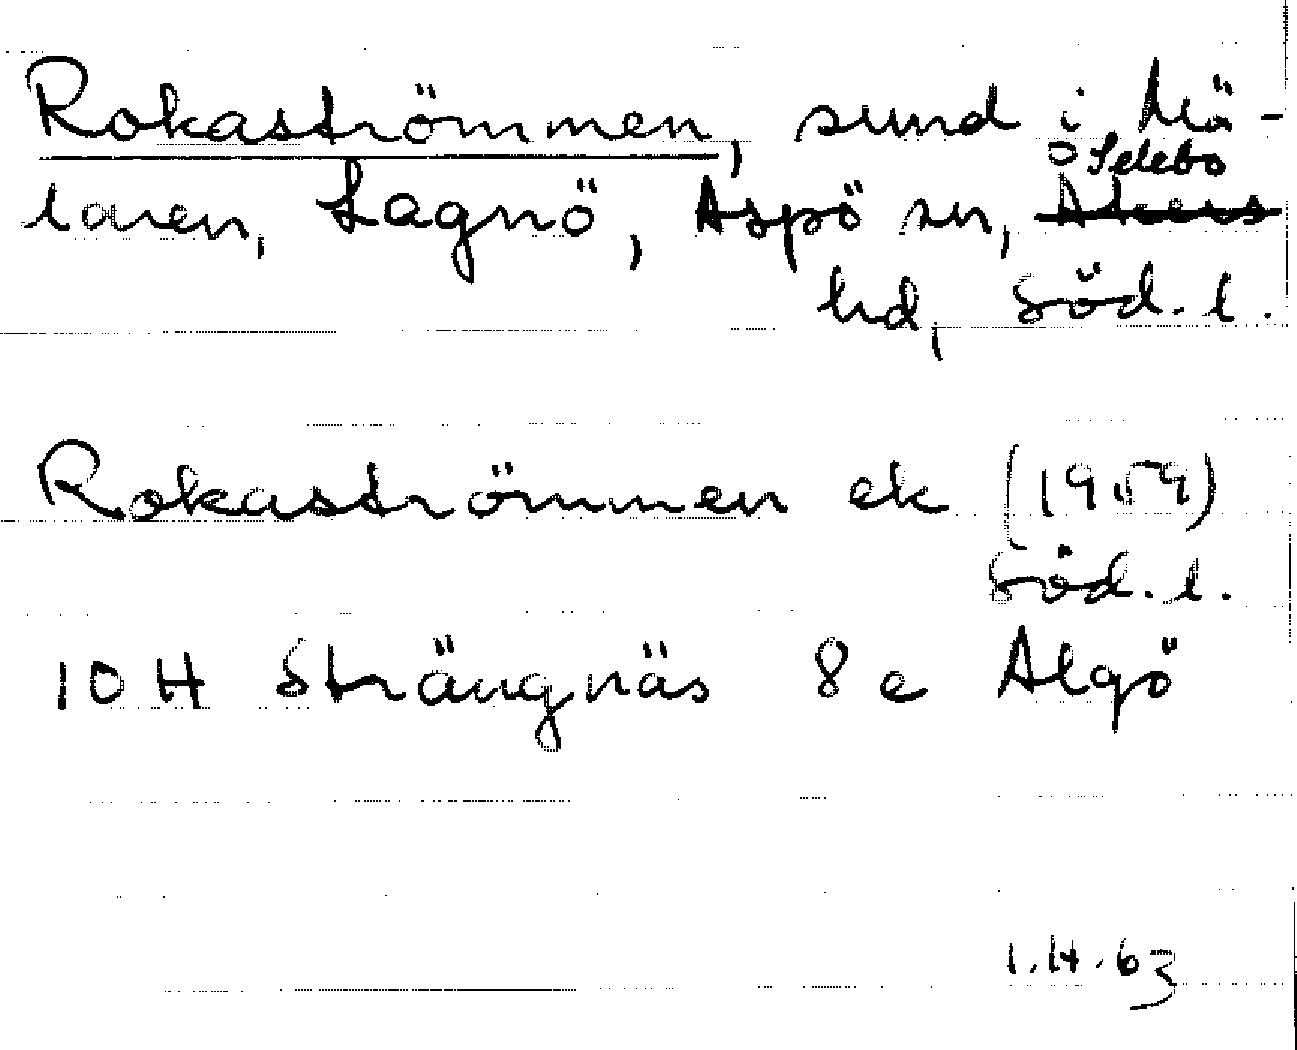 Rokaströmmen, sund i Mä-
laren, Lagnö, Aspö sn, Åkers Selebo
hd, Söd. l.
Rokaströmmen ek (1959)
Söd. l.
10 H Strängnäs 8 e Algö
1.H.63